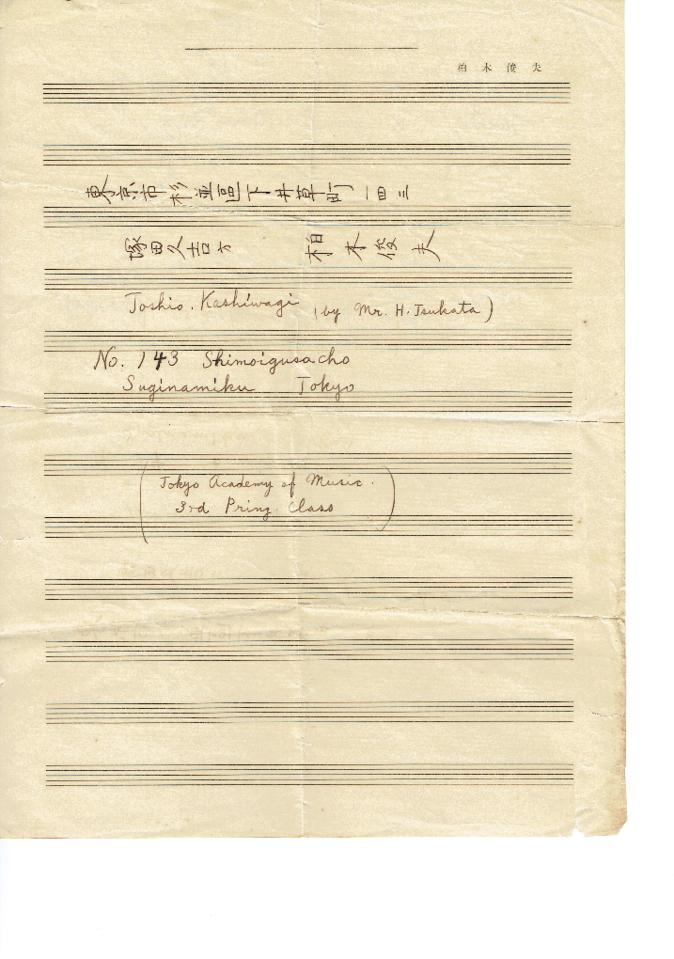 柏木俊夫
東京市杉並區下井草町一四三
塚田久吉方 柏木俊夫
Toshio. Kashiwagi (by Mr. H. Tsukata)
No. 143 Shimoigusacho
Suginamiku Tokyo
(Tokyo Academy of Music.
3rd Prinz Class)